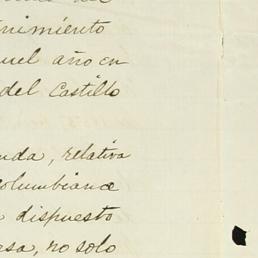 nimiento
uel año en
del Castillo
nda, relativa
olumbiana
dispuesto
asa, no solo